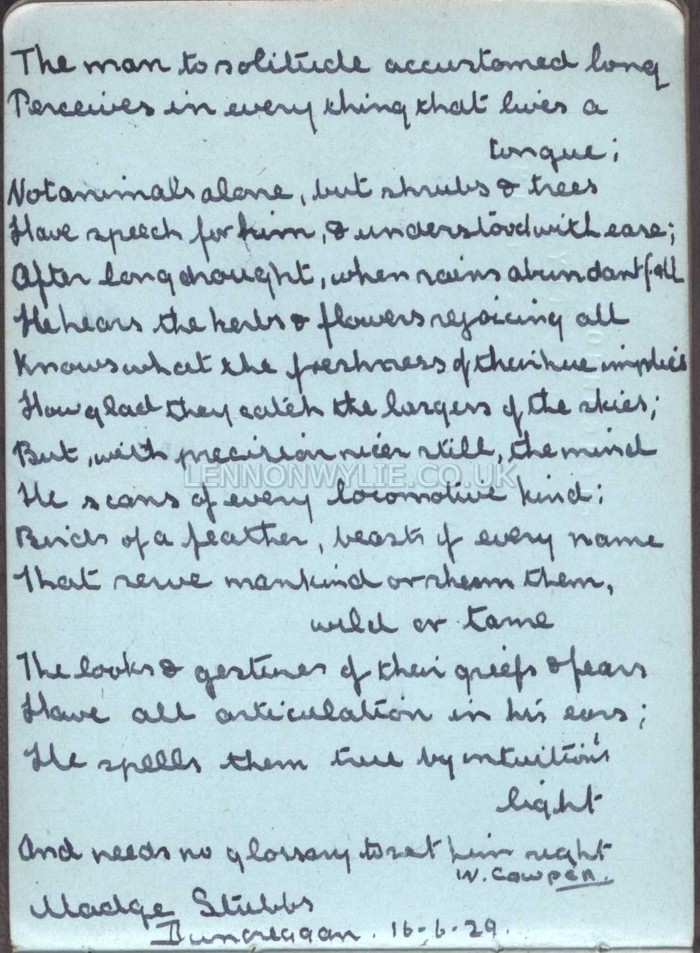 The man to solitude accustomed long
Perceives in every thing that lives a
tongue;
Not animals alone, but shrubs & trees
Have speech for him, & understood with ease;
After long drought, when rains abundant fall
He hears the herbs & flowers rejoicing all
Knows what the freshness of their hue implies
How glad they catch the largess of the skies;
But, with precision nicer still, the mind
LENNONWYLIE.CO.UK
He scans of every locomotive kind;
Birds of a feather, beasts of every name
That serve mankind or shun them,
wild or tame
The looks & gestures of their griefs & fears
Have all articulation in his ears;
He spells them true by intuition's
light
And needs no glossary to set him right
W. Cowper.
Madge Stubbs
Duncreggan. 16-6-29.